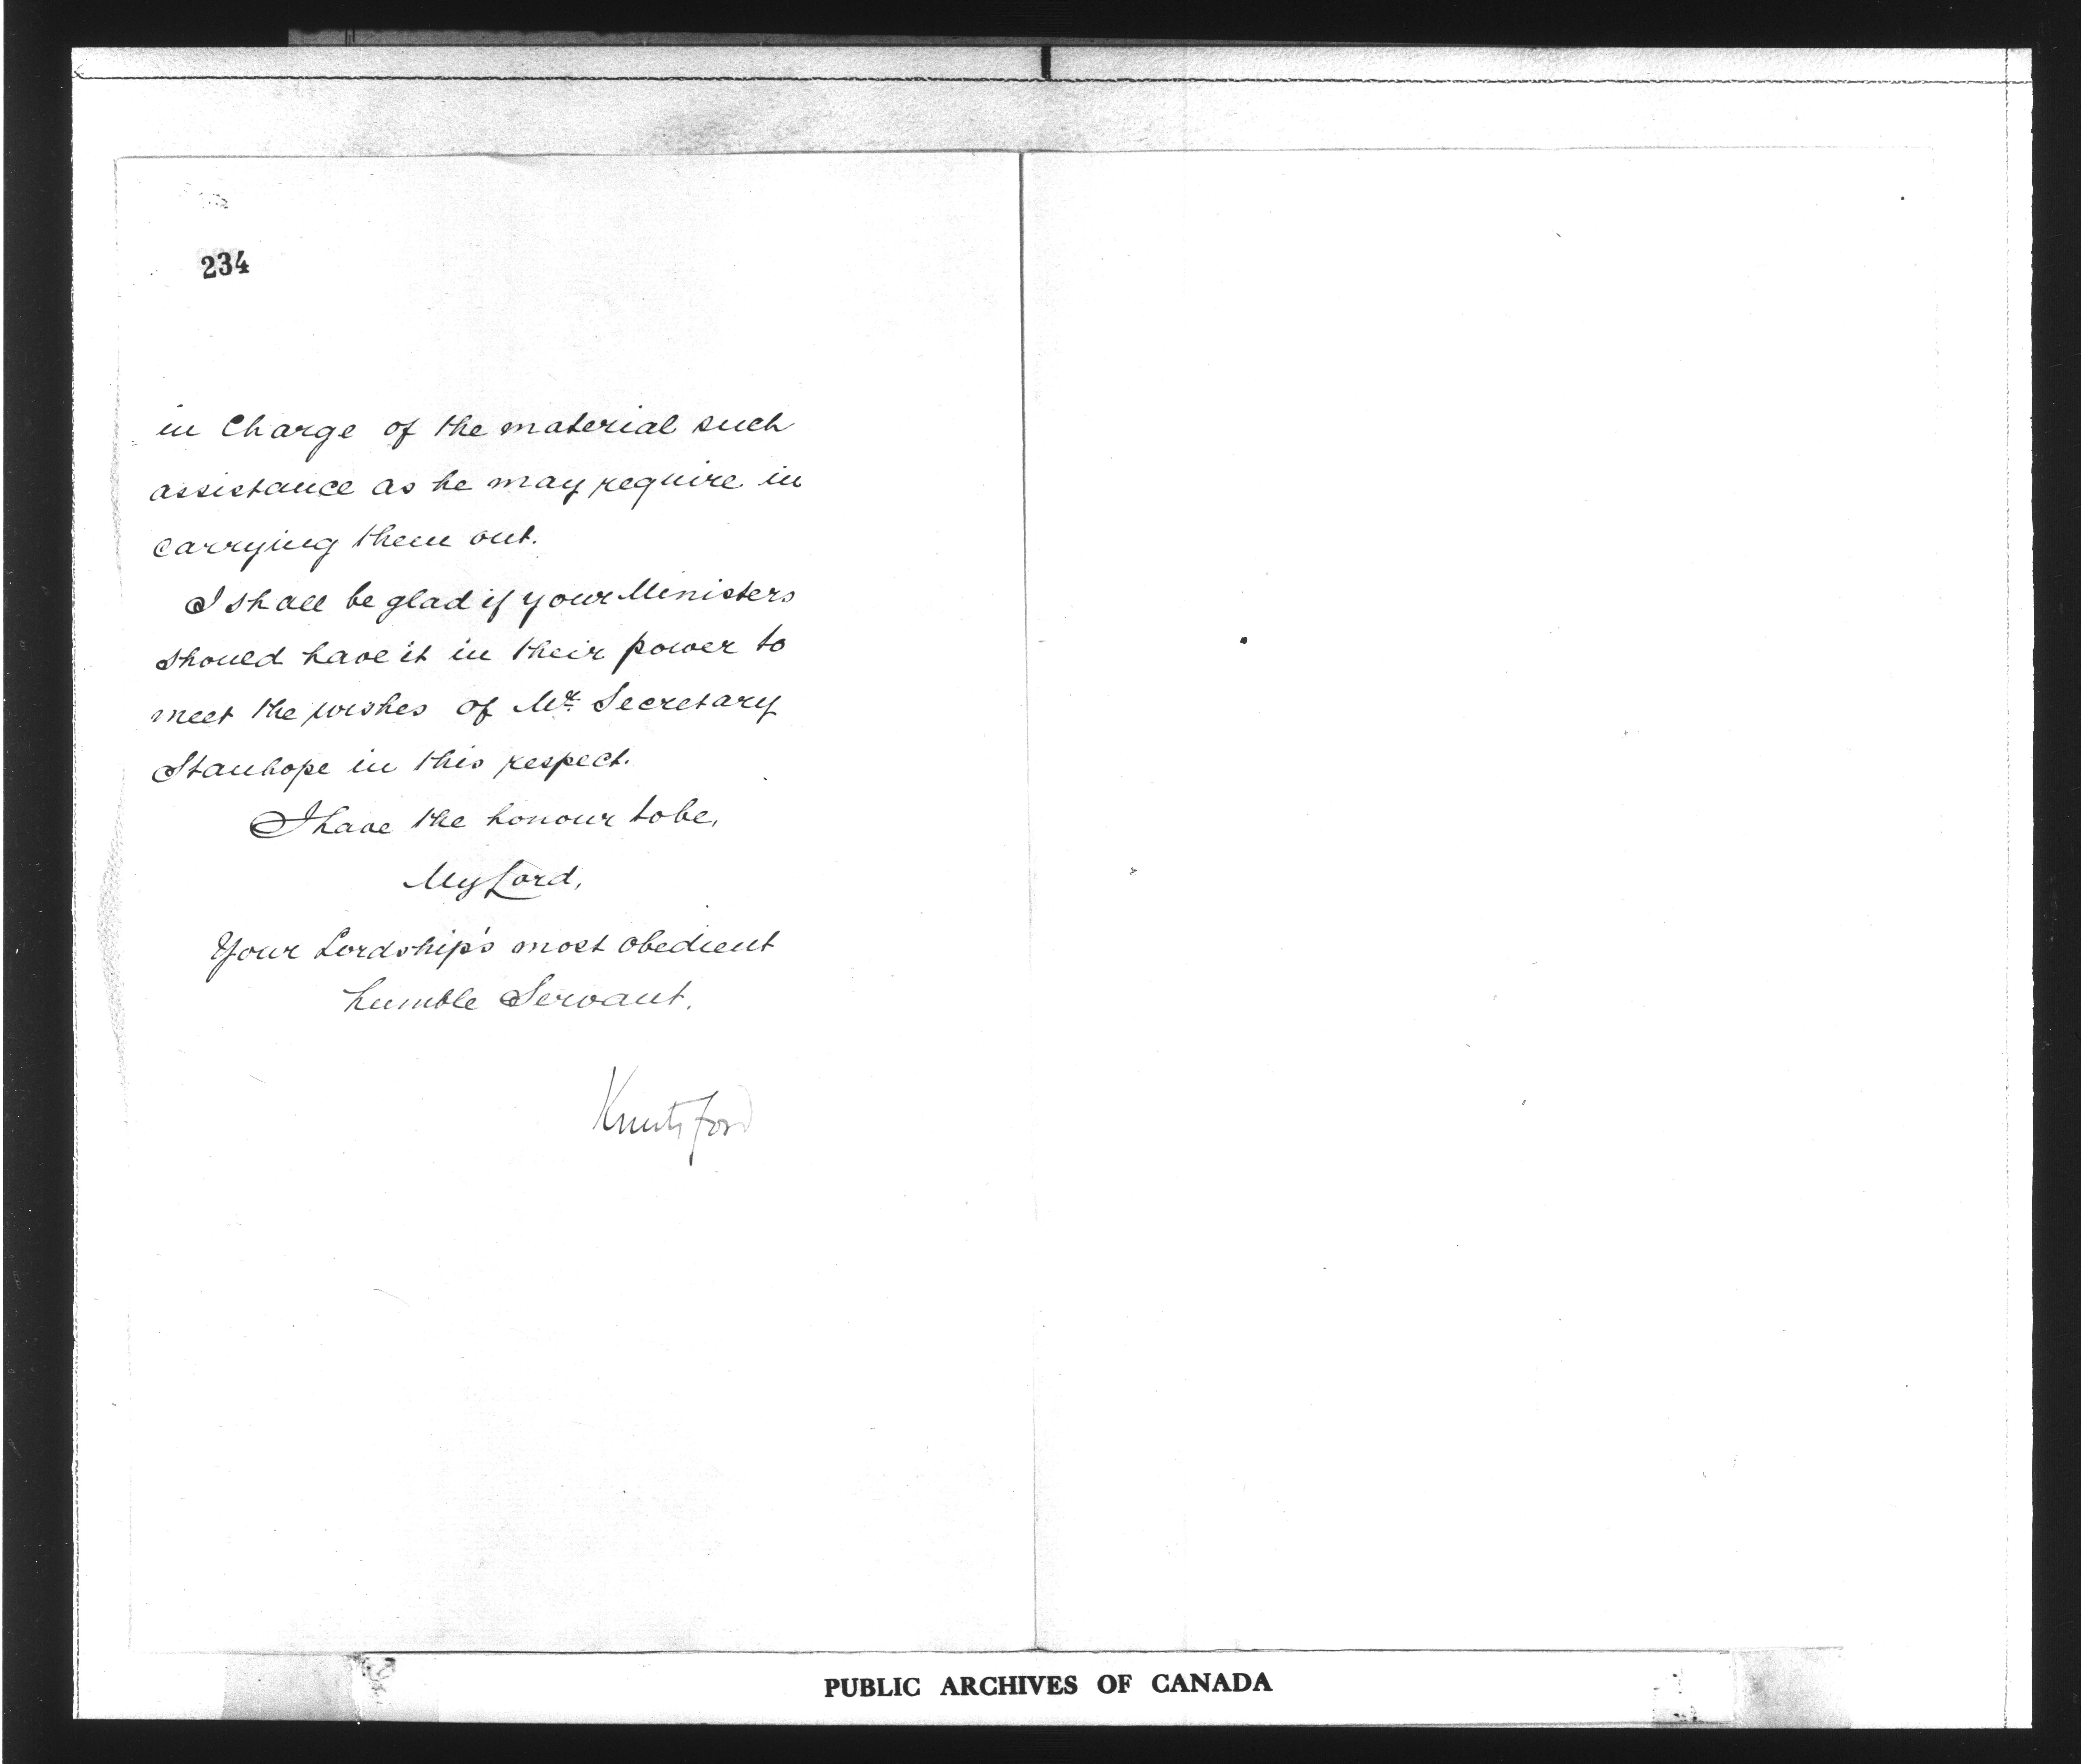 234
in Charge of the material such
assistance as he may require in
carrying them out.
I shall be glad if your Ministers
should have it in their power to
meet the wishes of Mr Secretary
Stanhope in this respect.
I have the honour to be,
My Lord,
Your Lordship's most obedient
humble Servant.
Knutsford
PUBLIC ARCHIVES OF CANADA